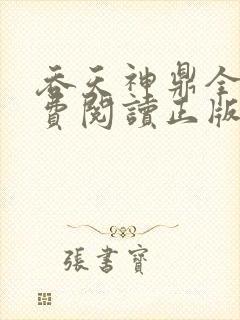 吞天神鼎全
費閱讀正版
張書寶